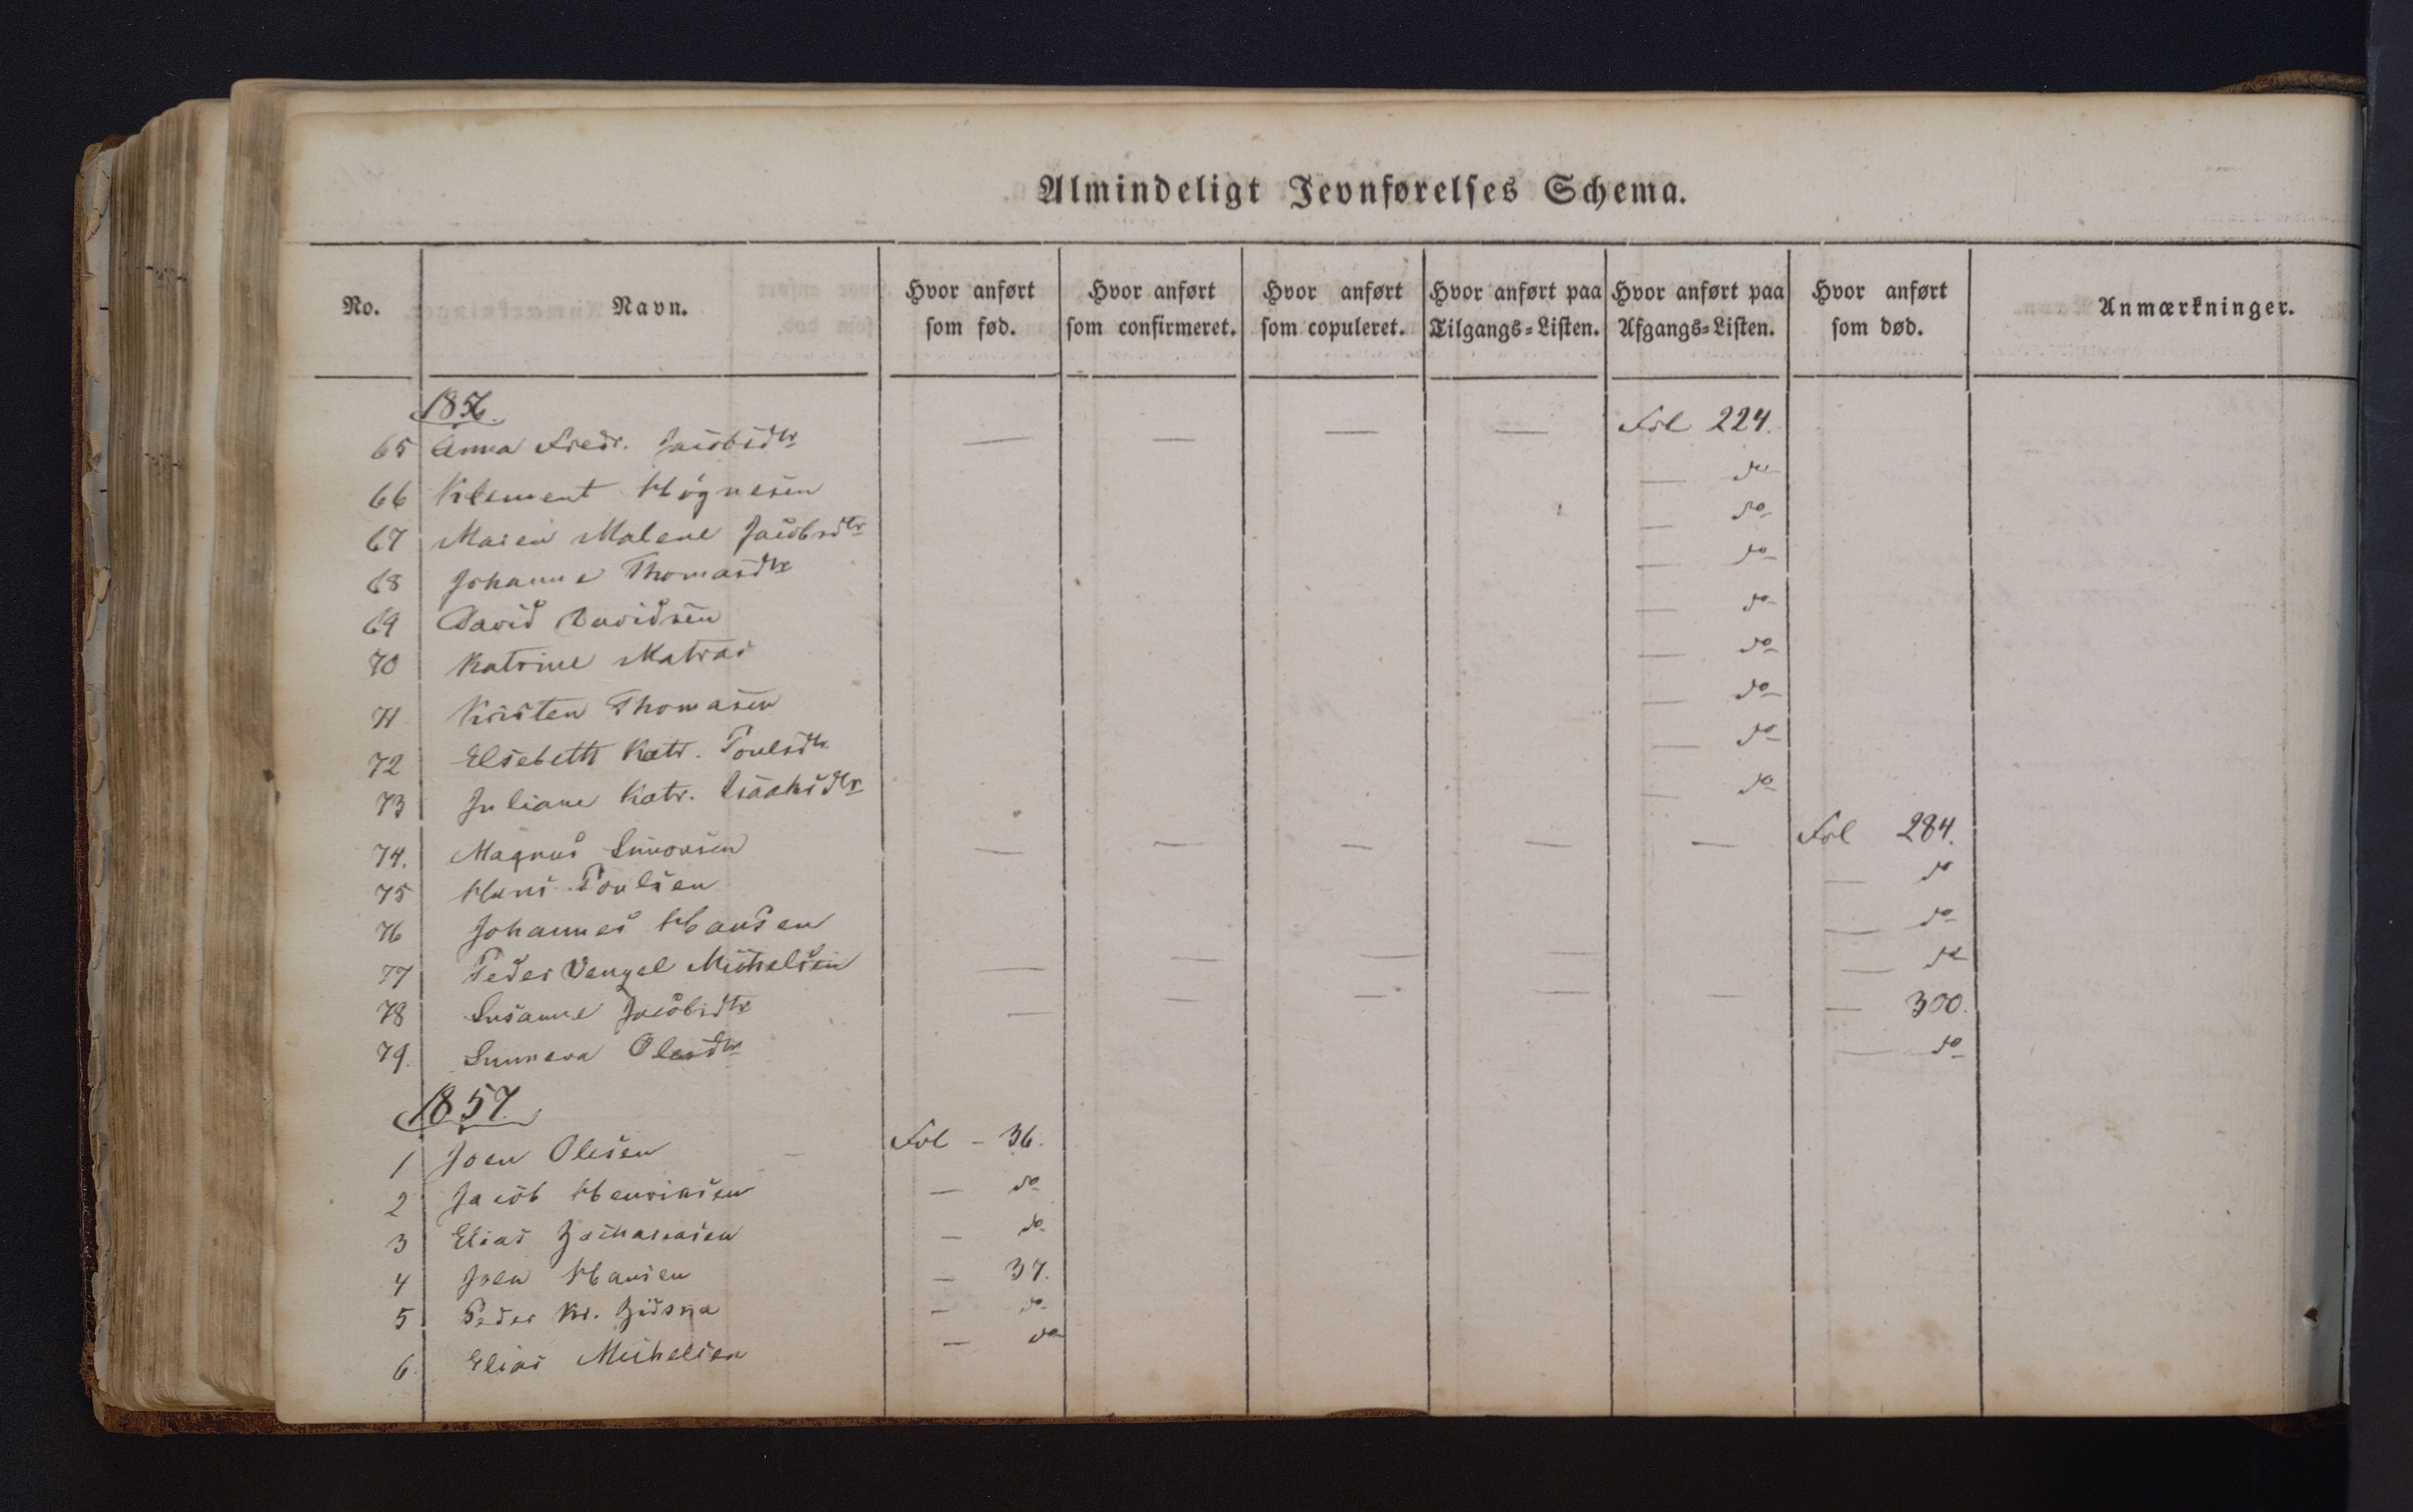 Almindeligt Jevnførelses Schema.
No. Navn. Hvor anført som fød. Hvor anført som confirmeret. Hvor anført som copuleret. Hvor anført paa Tilgangs=Listen. Hvor anført paa Afgangs=Listen. Hvor anført som død. Anmærkninger.
1856.
65 Anna Fredr. Jacobsdtr — — — — Fol 224.
66 Klement Høgnesen — do
67 Maren Malene Jacobsdtr — do
68 Johanne Thomasdtr — do
69 David Davidsen — do
70 Katrine Matras — do
71 Kristen Thomasen — do
72 Elsebeth Katr. Poulsdtr — do
73 Juliane Katr. Isaaksdtr — do
74. Magnus Simonsen — — — — — Fol 284.
75 Hans Poulsen — do
76 Johannes Hansen — do
77 Peder Venzel Michelsen — — — — — do
78 Susanne Jacobsdtr — — — — — — 300.
79. Sunneva Olesdtr — do
1857.
1 Joen Olesen Fol - 36.
2 Jacob Henriksen — do
3 Elias Zachariasen — do
4 Joen Hansen — 37.
5 Peder Kr. — do
6 Elias Michelsen — do